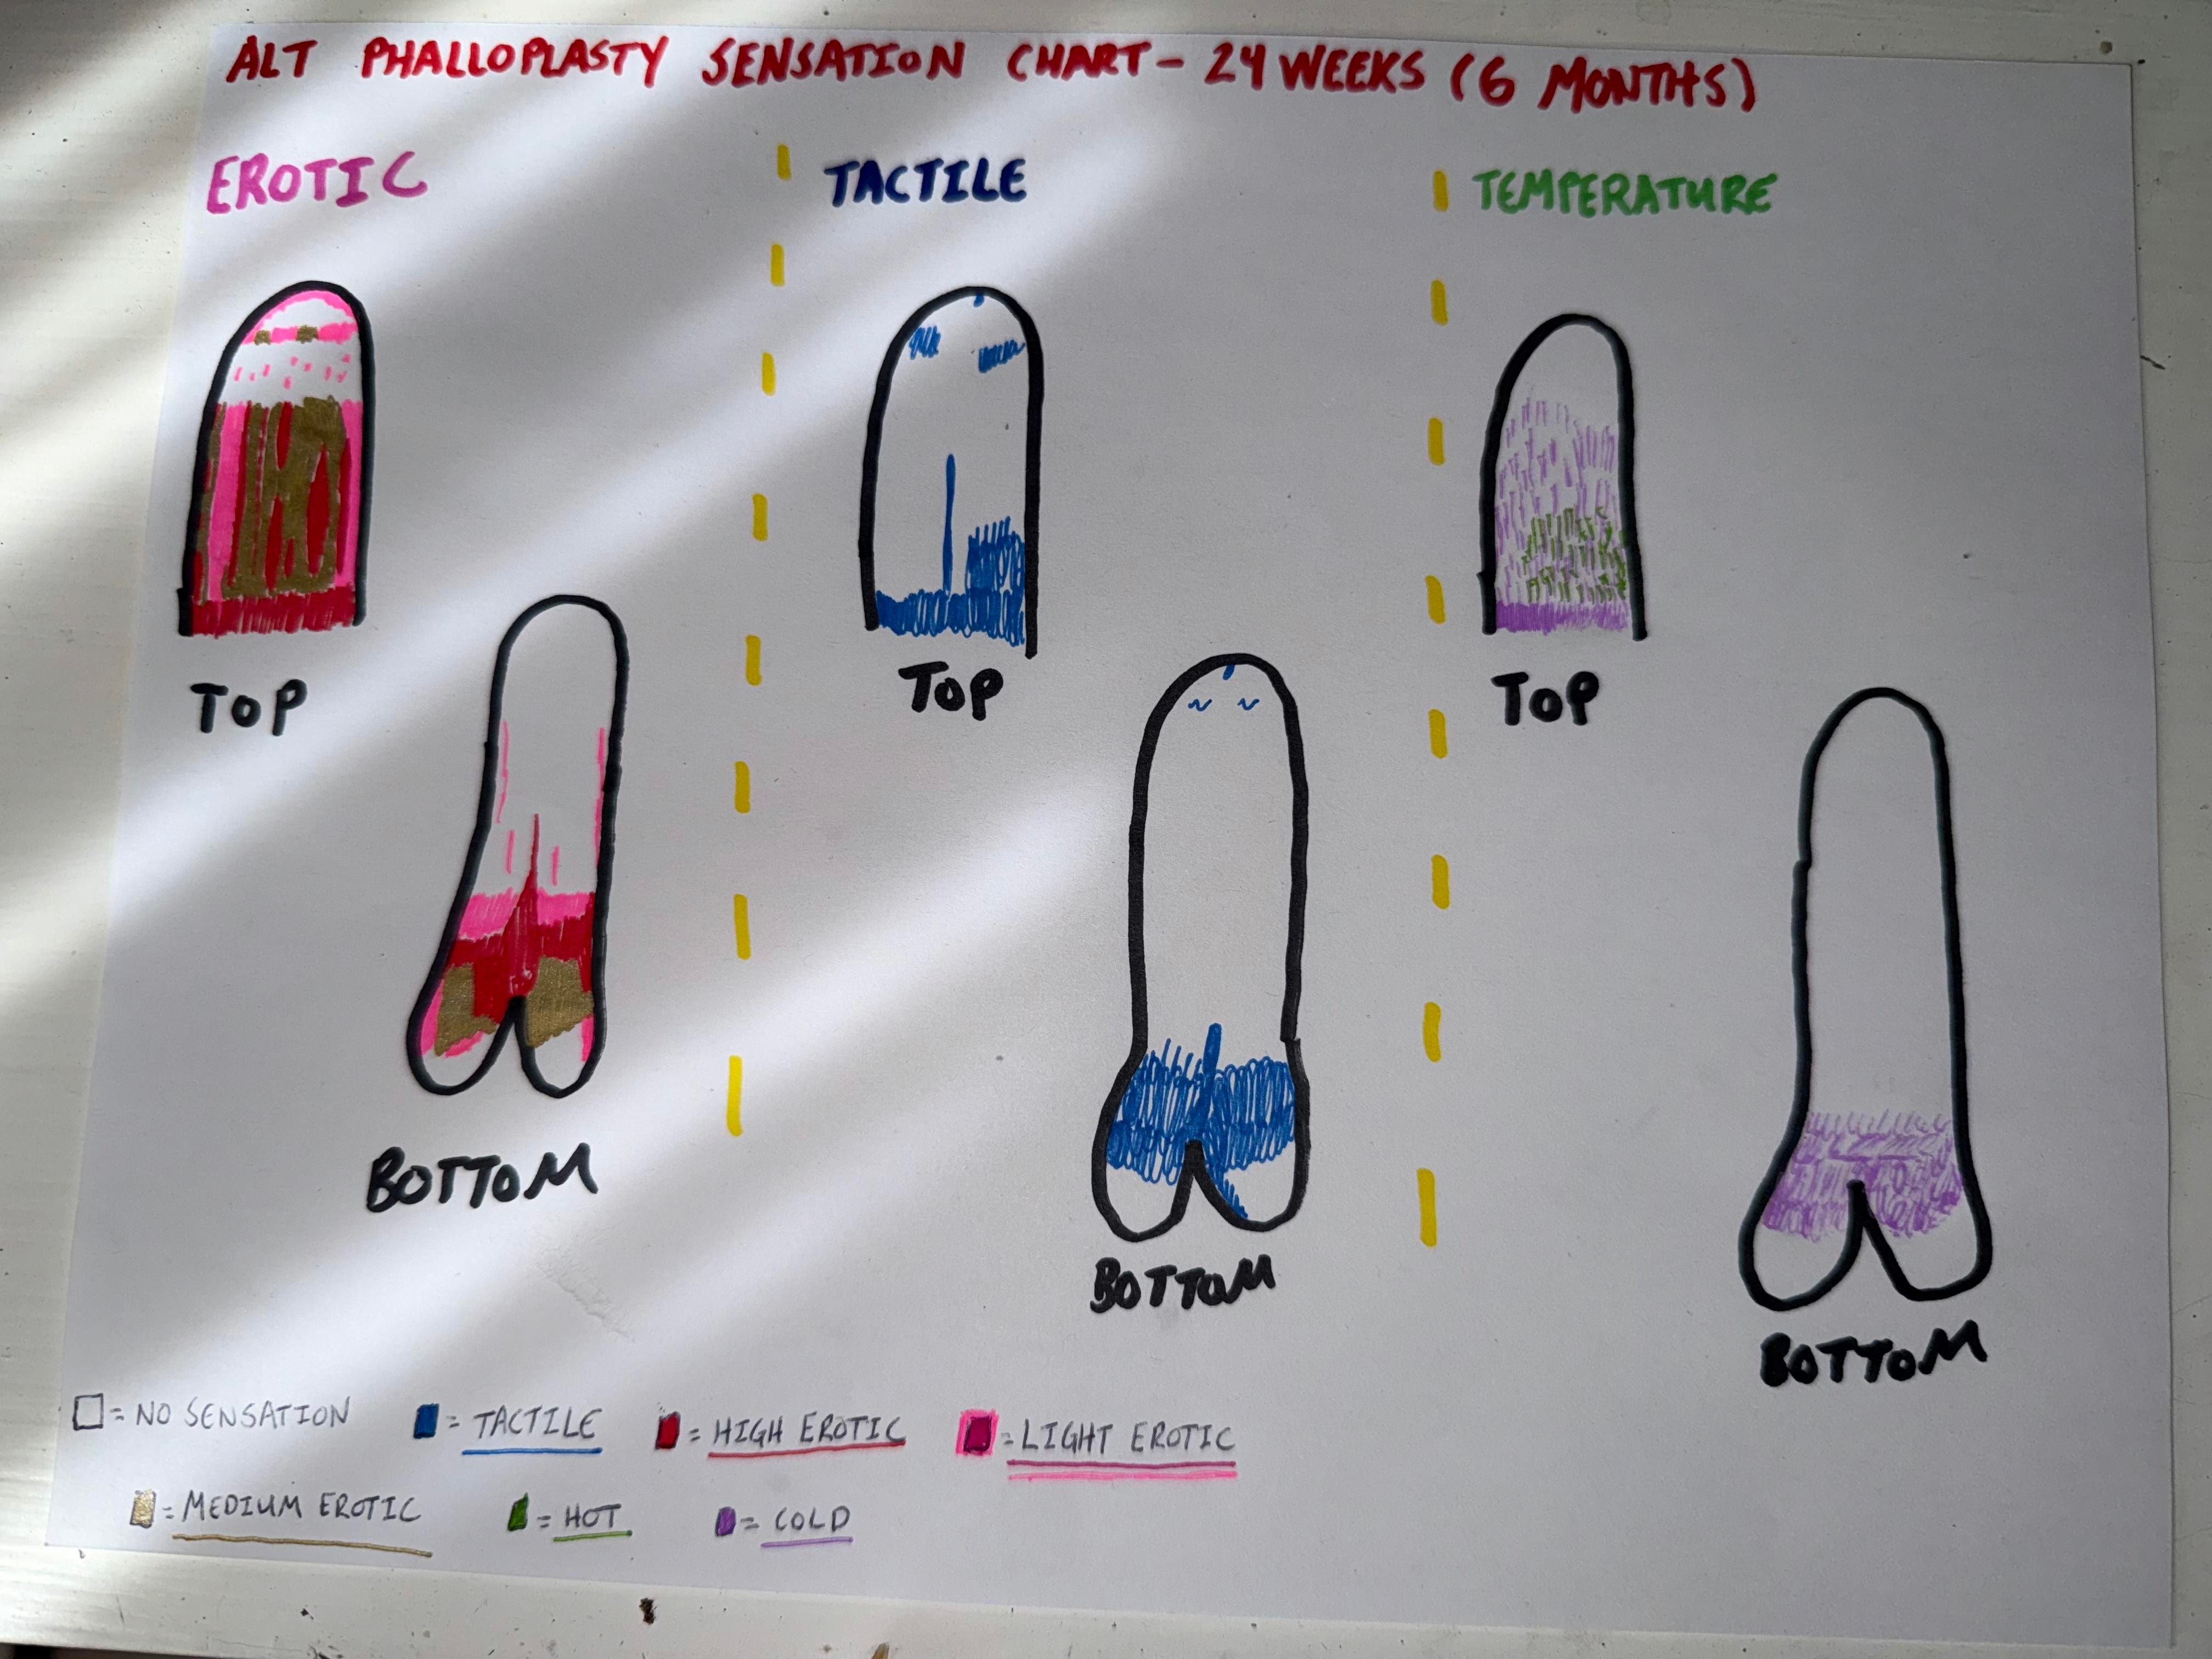 ALT PHALLOPLASTY SENSATION CHART - 24 WEEKS (6 MONTHS)
EROTIC
TACTILE
TEMPERATURE
TOP
TOP
TOP
BOTTOM
BOTTOM
BOTTOM
= NO SENSATION
= TACTILE
= HIGH EROTIC
= LIGHT EROTIC
= MEDIUM EROTIC
= HOT
= COLD